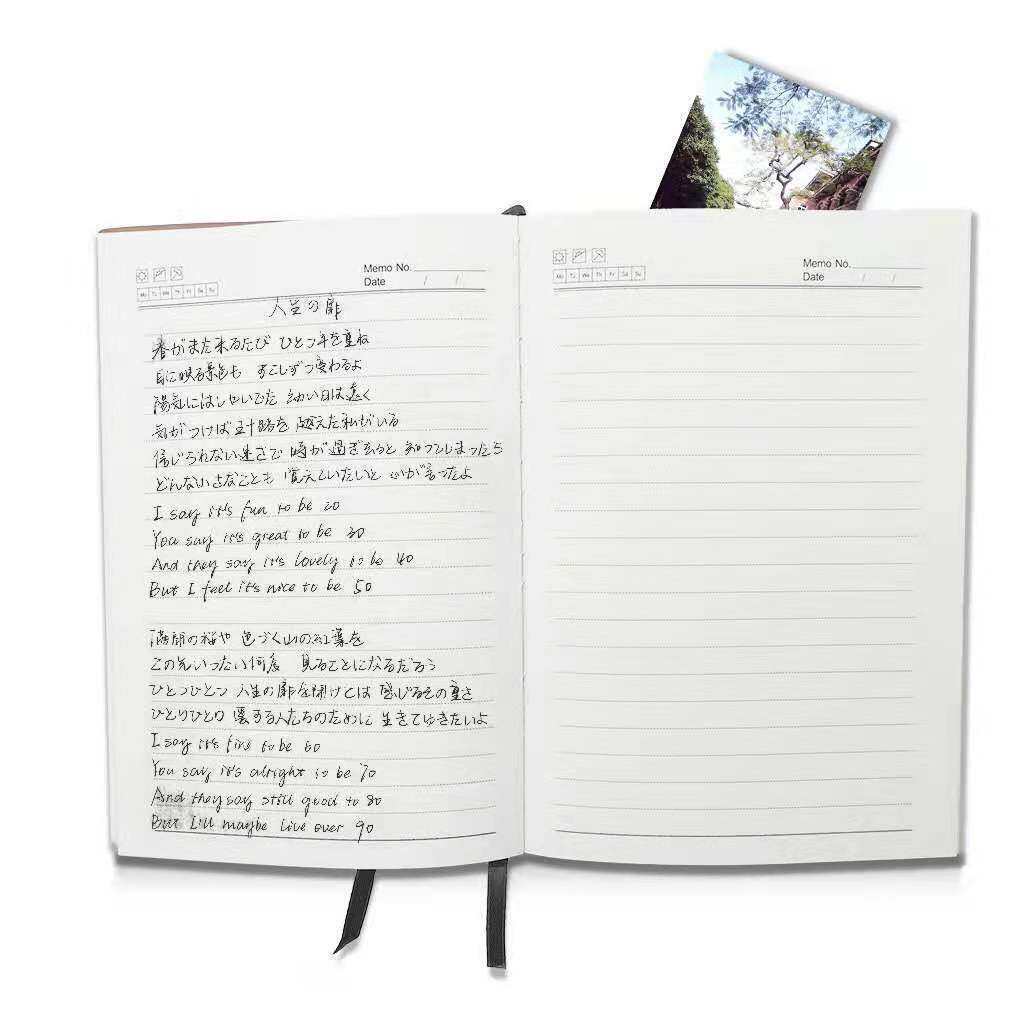 Memo No.
Date / /
Mo Tu We Th Fr Sa Su
人生の扉
春がまた来るたび ひとつ年を重ね
目に映る景色も すこしずつ変わるよ
陽気にはしゃいでた 幼い日は遠く
気がつけば五十路を 越えた私がいる
信じられない速さで 時が過ぎ去ると 知ってしまったら
どんな小さなことも 覚えていたいと 心が言ったよ
I say it's fun to be 20
You say it's great to be 30
And they say it's lovely to be 40
But I feel it's nice to be 50
満開の桜や 色づく山の紅葉を
この先いったい何度 見ることになるだろう
ひとつひとつ 人生の扉を開けては 感じるその重さ
ひとりひとり 愛する人たちのために 生きてゆきたいよ
I say it's fine to be 60
You say it's alright to be 70
And they say still good to 80
But I'll maybe live over 90
Memo No.
Date / /
Mo Tu We Th Fr Sa Su